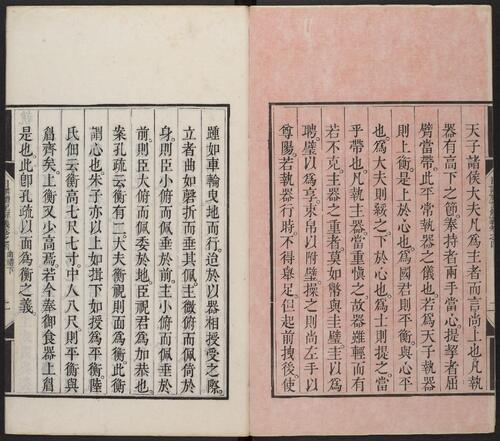 天子諸侯大夫凡爲主者而言尚上也凡執
器有高下之節奉持者兩手當心提挈者屈
臂當帶。此平常執器之儀也。若爲天子執器
則上衡。是上於心也。爲國君則平衡。與心平
也。爲大夫則綏之。下於心也。爲士則提之。當
乎帶也。凡執主器。當重慎之。故器雖輕而有
若不克。主器之重者。莫如幣與圭璧。圭以爲
聘。璧以爲享。束帛以附璧。操之則尚左手以
尊陽。若執器行時。不得舉足。但起前拽後。使
踵如車輪曳地而行。迨於以器相授受之際。
立者曲如磬折而垂其佩。主微俯而佩倚於
身。則臣小俯而佩垂於前。主小俯而佩垂於
前。則臣大俯而佩委於地。臣視君爲加恭也。
案孔疏云衡有二。大夫衡視則面爲衡。此衡
謂心也。朱子亦以上如揖下如授爲平衡。陸
氏佃云衡高七尺七寸。中人八尺則平衡與
眉齊矣。上衡又少高焉。若今奉御食器上眉
是也。此卽孔疏以面爲衡之義。